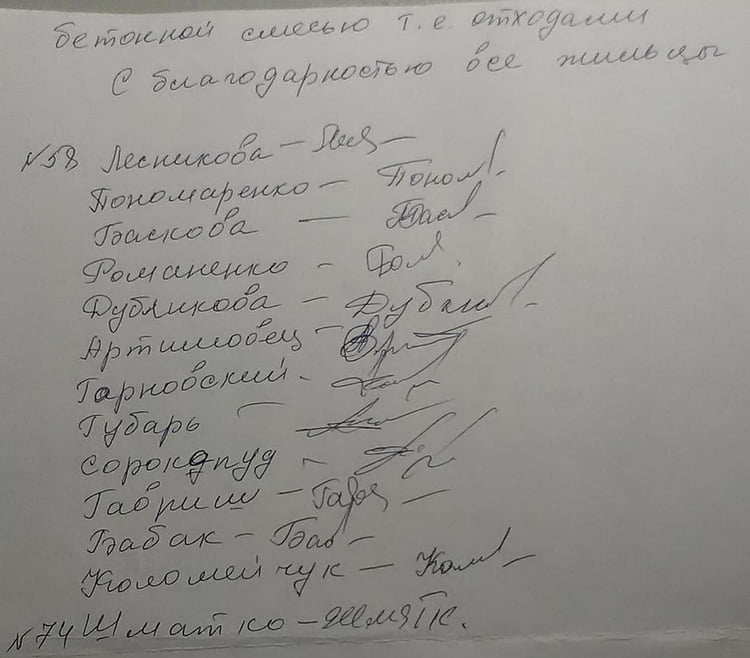 бетонной смесью т.е. отходами
С благодарностью все жильцы
№58 Лесникова –
Пономаренко – Поном
Баскова — Бас
Романенко – Ром
Дубликова –
Артимовец –
Гарновский –
Губарь —
Сорокопуд -
Гавриш –
Бабак – Баб
Коломейчук — Колом
№74 Шматко –